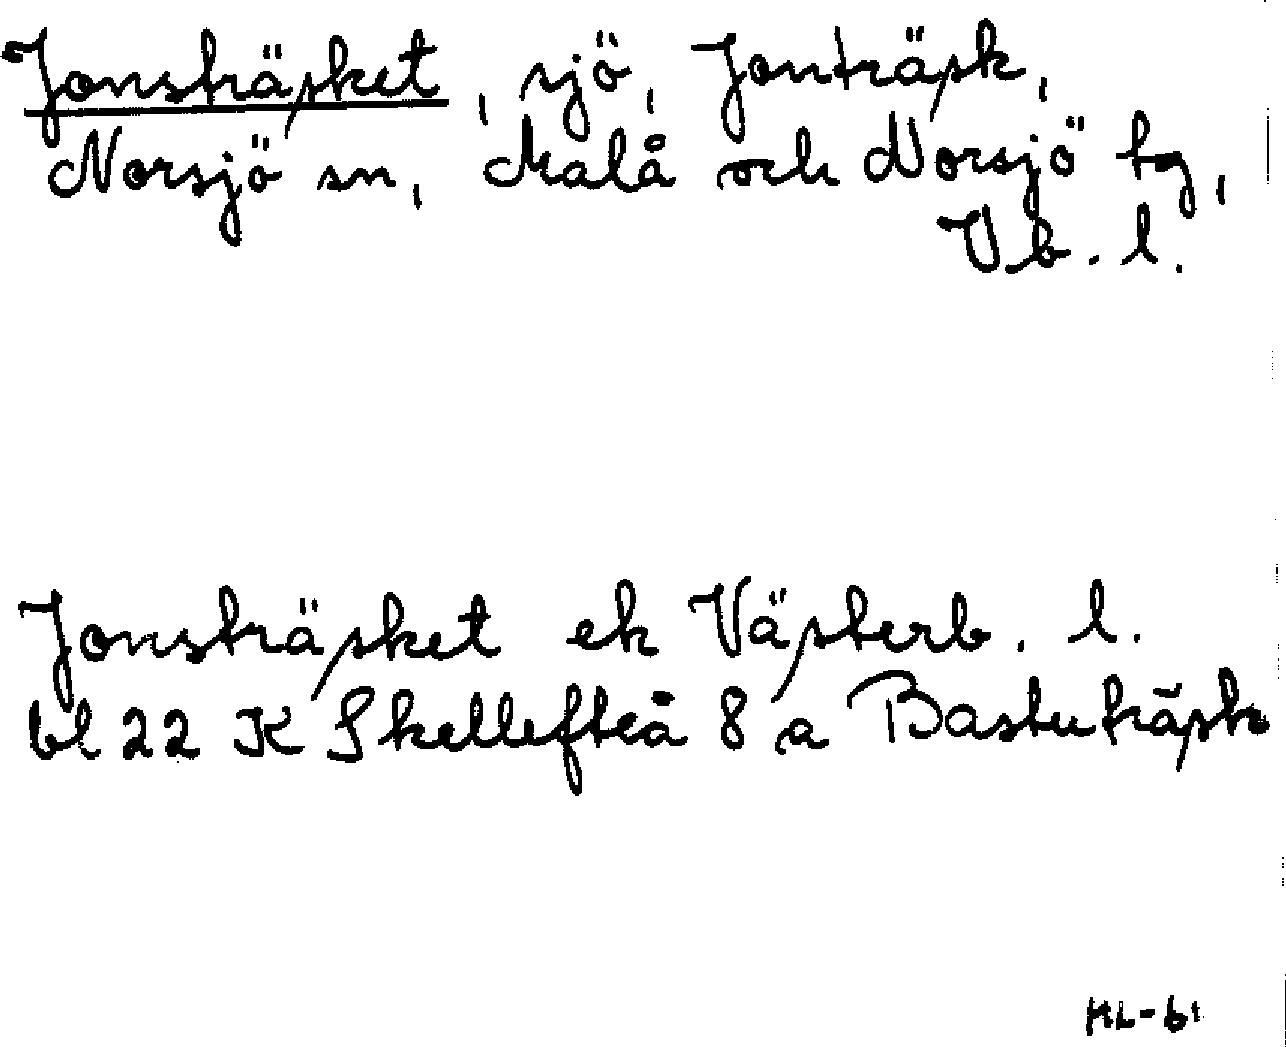 Jonsträsket, sjö, Jonträsk,
Norsjö sn, Malå och Norsjö tg,
Vb. l.
Jonsträsket ek Västerb. l.
bl 22 K Skellefteå 8 a Bastuträsk
ML-61